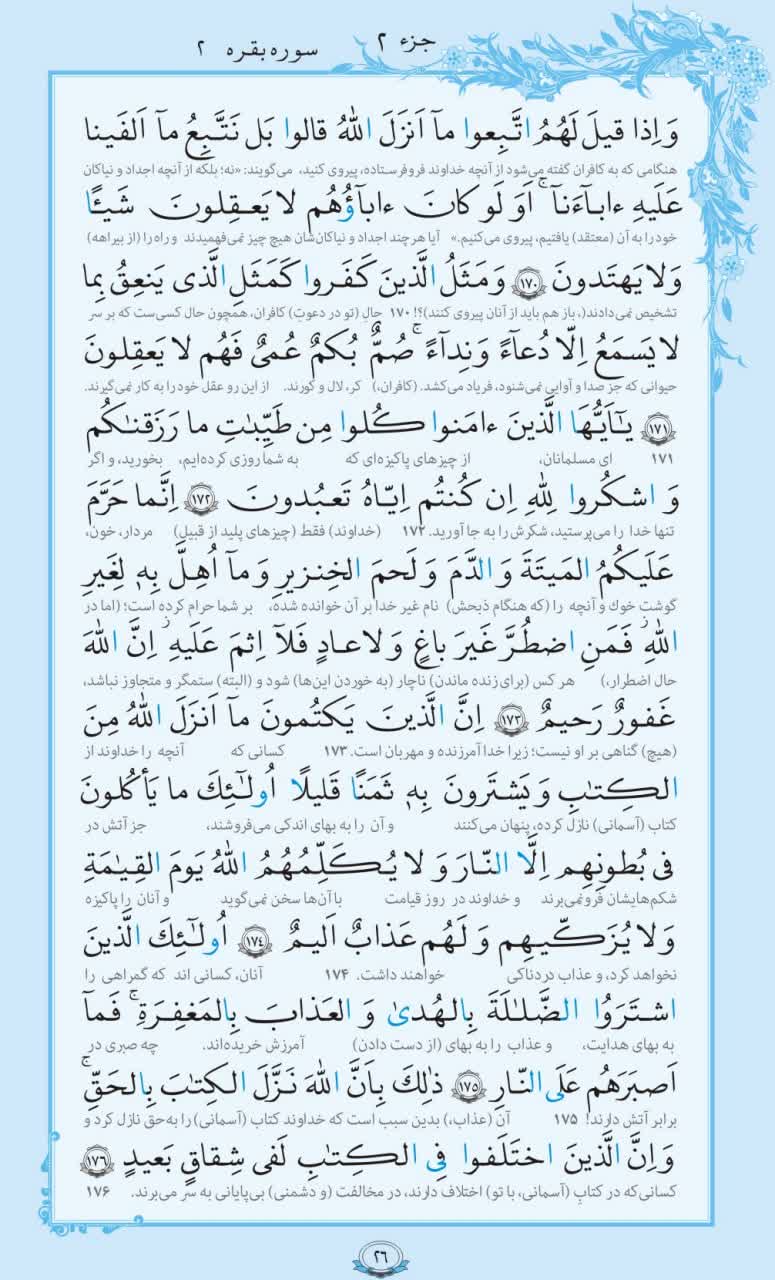 جزء ۲
سوره بقره ۲
وَ اِذا قیلَ لَهُمُ اتَّبِعوا مآ اَنزَلَ اللهُ قالوا بَل نَتَّبِعُ مآ اَلفَینا
هنگامی که به کافران گفته می‌شود از آنچه خداوند فروفرستاده، پیروی کنید، می‌گویند: «نه؛ بلکه از آنچه اجداد و نیاکان
عَلَیهِ ءابآءَنآ ۚ اَوَ لَو کانَ ءابآؤُهُم لا یَعقِلونَ شَیئًا
خود را به آن (معتقد) یافتیم، پیروی می‌کنیم.» آیا هرچند اجداد و نیاکان‌شان هیچ چیز نمی‌فهمیدند و راه را (از بیراهه)
وَ لا یَهتَدونَ ﴿۱۷۰﴾ وَ مَثَلُ الَّذینَ کَفَروا کَمَثَلِ الَّذی یَنعِقُ بِما
تشخیص نمی‌دادند(، باز هم باید از آنان پیروی کنند)؟! ۱۷۰ حال (تو در دعوتِ) کافران، همچون حال کسی‌ست که بر سر
لا یَسمَعُ اِلّا دُعآءً وَ نِدآءً ۚ صُمٌّ بُکمٌ عُمیٌ فَهُم لا یَعقِلونَ
حیوانی که جز صدا و آوایی نمی‌شنود، فریاد می‌کشد. (کافران،) کر، لال و کورند. از این رو عقل خود را به کار نمی‌گیرند.
﴿۱۷۱﴾ یٰـاَیُّهَا الَّذینَ ءامَنوا کُلوا مِن طَیِّبٰتِ ما رَزَقنٰکُم
۱۷۱ ای مسلمانان، از چیزهای پاکیزه‌ای که به شما روزی کرده‌ایم، بخورید، و اگر
وَ اشکُروا لِلّٰهِ اِن کُنتُم اِیّاهُ تَعبُدونَ ﴿۱۷۲﴾ اِنَّما حَرَّمَ
تنها خدا را می‌پرستید، شکرش را به جا آورید. ۱۷۲ (خداوند) فقط (چیزهای پلید از قبیل) مردار، خون،
عَلَیکُمُ المَیتَةَ وَ الدَّمَ وَ لَحمَ الخِنزیرِ وَ مآ اُهِلَّ بِهٖ لِغَیرِ
گوشت خوک و آنچه را (که هنگام ذبحش) نام غیر خدا بر آن خوانده شده، بر شما حرام کرده است؛ (اما در
اللهِ ۖ فَمَنِ اضطُرَّ غَیرَ باغٍ وَ لا عادٍ فَلآ اِثمَ عَلَیهِ ۚ اِنَّ اللهَ
حال اضطرار،) هر کس (برای زنده ماندن) ناچار (به خوردن این‌ها) شود و (البته) ستمگر و متجاوز نباشد،
غَفورٌ رَحیمٌ ﴿۱۷۳﴾ اِنَّ الَّذینَ یَکتُمونَ مآ اَنزَلَ اللهُ مِنَ
(هیچ) گناهی بر او نیست؛ زیرا خدا آمرزنده و مهربان است. ۱۷۳ کسانی که آنچه را خداوند از
الکِتٰبِ وَ یَشتَرونَ بِهٖ ثَمَنًا قَلیلًا اُولٰئِکَ ما یَأکُلونَ
کتاب (آسمانی) نازل کرده، پنهان می‌کنند و آن را به بهای اندکی می‌فروشند، جز آتش در
فی بُطونِهِم اِلَّا النّارَ وَ لا یُکَلِّمُهُمُ اللهُ یَومَ القِیٰمَةِ
شکم‌هایشان فرونمی‌برند و خداوند در روز قیامت با آن‌ها سخن نمی‌گوید و آنان را پاکیزه
وَ لا یُزَکّیهِم وَ لَهُم عَذابٌ اَلیمٌ ﴿۱۷۴﴾ اُولٰئِکَ الَّذینَ
نخواهد کرد، و عذاب دردناکی خواهند داشت. ۱۷۴ آنان، کسانی اند که گمراهی را
اشتَرَوُا الضَّلٰلَةَ بِالهُدیٰ وَ العَذابَ بِالمَغفِرَةِ ۚ فَمآ
به بهای هدایت، و عذاب را به بهای (از دست دادن) آمرزش خریده‌اند. چه صبری در
اَصبَرَهُم عَلَی النّارِ ﴿۱۷۵﴾ ذٰلِکَ بِاَنَّ اللهَ نَزَّلَ الکِتٰبَ بِالحَقِّ ۗ
برابر آتش دارند! ۱۷۵ آن (عذاب،) بدین سبب است که خداوند کتاب (آسمانی) را به‌حق نازل کرد و
وَ اِنَّ الَّذینَ اختَلَفوا فِی الکِتٰبِ لَفی شِقاقٍ بَعیدٍ ﴿۱۷۶﴾
کسانی‌که در کتابِ (آسمانی، با تو) اختلاف دارند، در مخالفت (و دشمنی) بی‌پایانی به سر می‌برند. ۱۷۶
۲۶